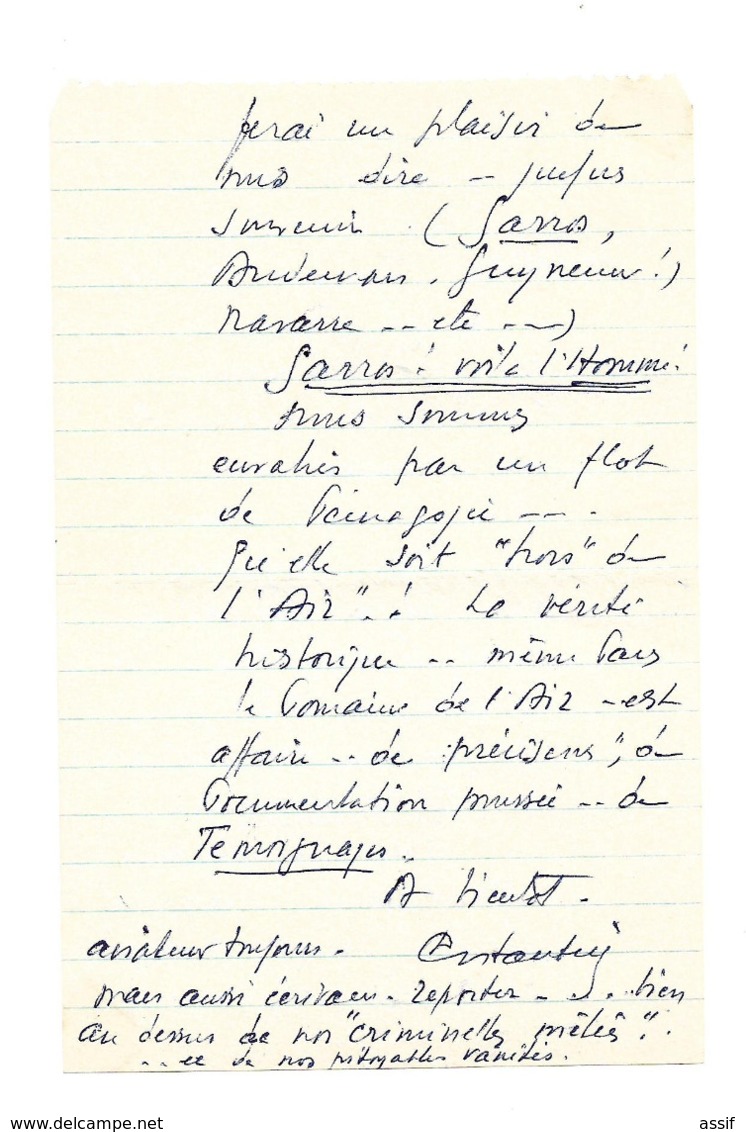 ferai un plaisir de
vous dire -- quelques
souvenirs (Garros,
Audemars, Guynemer!)
Navarre --- etc ---)
Garros! voila l'Homme!
nous sommes
envahis par un flot
de Demagogie --- .
Qu'elle soit "hors" de
l'Air"-! La vérité
historique -- même dans
le Domaine de l'Air - est
affaire -- de précisions", de
Documentation poussée -- de
Temoignages.
A bientôt -
aviateur toujours -
mais aussi écrivain - reporter - .. - bien
au dessus de nos "criminelles mêlées".
... et de nos pitoyables vanités.
assif